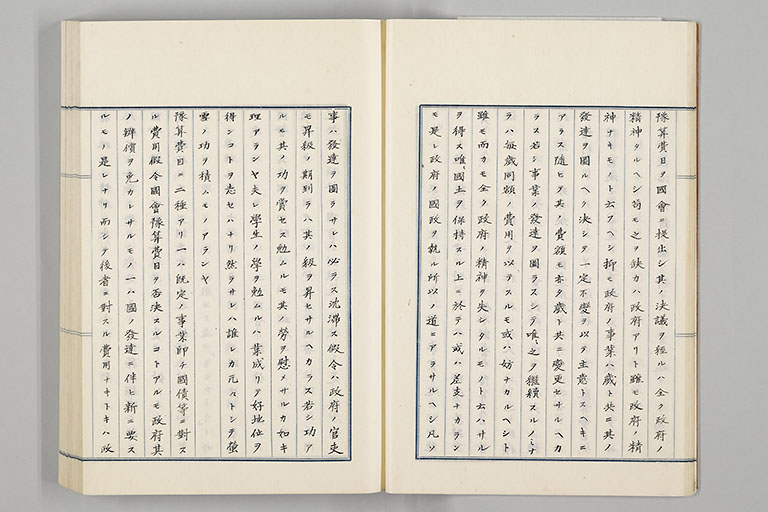 豫算費目ヲ國會ニ提出シ其ノ決議ヲ經ルハ全ク政府ノ
精神タルヘシ苟モ之ヲ缺カハ政府アリト雖モ政府ノ精
神ナキモノト云フヘシ抑モ政府ノ事業ハ歲ト共ニ其ノ
發達ヲ圖ルヘク決シテ一定不變ヲ以テ主意トスヘキニ
アラス隨ヒテ其ノ費額モ亦タ歲ト共ニ變更セサルヘカ
ラス若シ事業ノ發達ヲ圖ラスシテ唯之ヲ繼續スルノミナ
ラハ每歲同額ノ費用ヲ以テスルモ或ハ妨ナカルヘシト
雖モ而カモ全ク政府ノ精神ヲ失シタルモノト云ハサル
ヲ得ス唯國土ヲ保持スル上ニ於テハ或ハ差支ナカラン
モ是レ政府ノ國政ヲ執ル所以ノ道ニアラサルヘシ凡ソ
事ハ發達ヲ圖ラサレハ必ラス沈滯ス假令ハ政府ノ官吏
モ昇級ノ期到ラハ其ノ級ヲ昇セサルヘカラス若シ功ア
ルモ其ノ功ヲ賞セス勉ムルモ其ノ勞ヲ慰メサルカ如キ
理アランヤ夫レ學生ノ學ヲ勉ムルハ業成リテ好地位ヲ
得ンコトヲ志セハナリ然ラサレハ誰レカ兀々トシテ螢
雪ノ功ヲ積ムモノアランヤ
豫算費目ニ二種アリ一ハ既定ノ事業卽チ國債等ニ對ス
ル費用假令國會豫算費目ヲ否決スルコトアルモ政府其
ノ辨償ヲ免カレサルモノ一ハ國ノ發達ニ伴ヒ新ニ要ス
ルモノ是レナリ而シテ後者ニ對スル費用ナキトキハ政